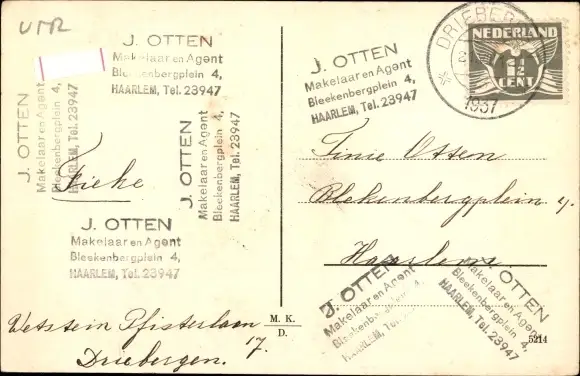 UTR
J. OTTEN
Makelaar en Agent
Bleekenbergplein 4,
HAARLEM, Tel. 23947
J. OTTEN
Makelaar en Agent
Bleekenbergplein 4,
HAARLEM, Tel. 23947
J. OTTEN
Makelaar en Agent
Bleekenbergplein 4,
HAARLEM, Tel. 23947
Fieke
J. OTTEN
Makelaar en Agent
Bleekenbergplein 4,
HAARLEM, Tel. 23947
Driebergen.
17.
M. K.
D.
J. OTTEN
Makelaar en Agent
Bleekenbergplein 4,
HAARLEM, Tel. 23947
DRIEBERG
1937
NEDERLAND
1½
CENT
Tinie Otten
Blekenbergplein 4
Haarlem.
J. OTTEN
Makelaar en Agent
Bleekenbergplein 4,
HAARLEM, Tel. 23947
J. OTTEN
Makelaar en Agent
Bleekenbergplein 4,
HAARLEM, Tel. 23947
5214